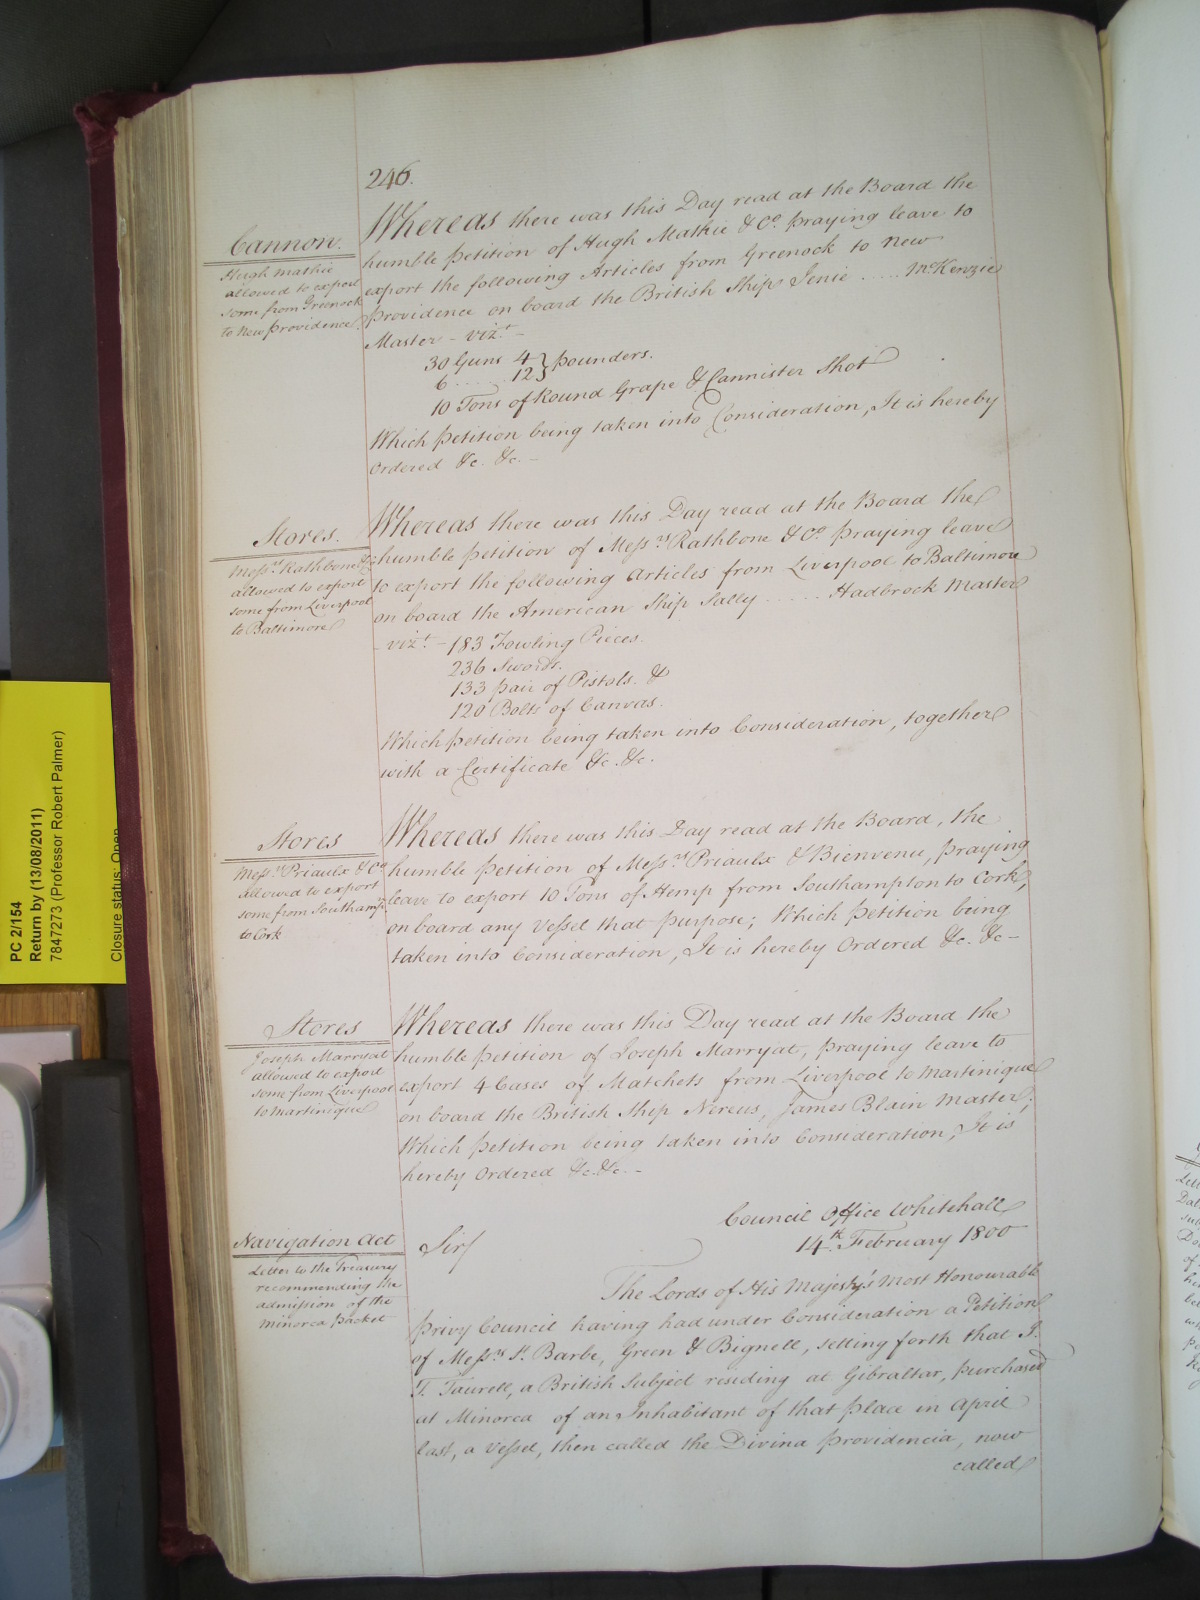 246.
Cannon.
Hugh Mathie
allowed to export
some from Greenock
to New Providence
Whereas there was this Day read at the Board the
humble petition of Hugh Mathie & Co. praying leave to
export the following Articles from Greenock to New
Providence on board the British Ship Jenie ..... McKenzie
Master - vizt. -
30 Guns 4 } pounders.
6 ..... 12 }
10 Tons of Round Grape & Cannister Shot
Which petition being taken into Consideration, It is hereby
Ordered &c. &c. -
Stores.
Messrs. Rathbone & Co
allowed to export
some from Liverpool
to Baltimore
Whereas there was this Day read at the Board the
humble petition of Messrs Rathbone & Co. praying leave
to export the following Articles from Liverpool to Baltimore
on board the American Ship Sally ..... Hadbrock Master
- vizt. - 183 Fowling Pieces.
236 Swords.
133 pair of Pistols. &
120 Bolts of Canvas.
Which petition being taken into Consideration, together
with a Certificate &c. &c.
Stores
Messrs. Priaulx & Co.
allowed to export
some from Southamp.
to Cork
Whereas there was this Day read at the Board, the
humble Petition of Messrs Priaulx & Bienvenu, praying
leave to export 10 Tons of Hemp from Southampton to Cork,
on board any Vessel that purpose; Which petition being
taken into Consideration, It is hereby Ordered &c. &c -
Stores
Joseph Marryat
allowed to export
some from Liverpool
to Martinique
Whereas there was this Day read at the Board the
humble petition of Joseph Marryat, praying leave to
export 4 Cases of Matchets from Liverpool to Martinique
on board the British Ship Nereus, James Blain Master;
Which petition being taken into Consideration, It is
hereby Ordered &c. &c. -
Council Office Whitehall
14th February 1800
Navigation Act
Letter to the Treasury
recommending the
admission of the
Minorca packet
Sir/
The Lords of His Majesty's Most Honourable
Privy Council having had under Consideration a Petition
of Messrs St. Barbe, Green & Bignell, setting forth that J.
T. Taurell, a British Subject residing at Gibraltar, purchased
at Minorca of an Inhabitant of that place in April
last, a Vessel, then called the Divina Providencia, now
called
PC 2/154
Return by (13/08/2011)
7847273 (Professor Robert Palmer)
Closure status: Open